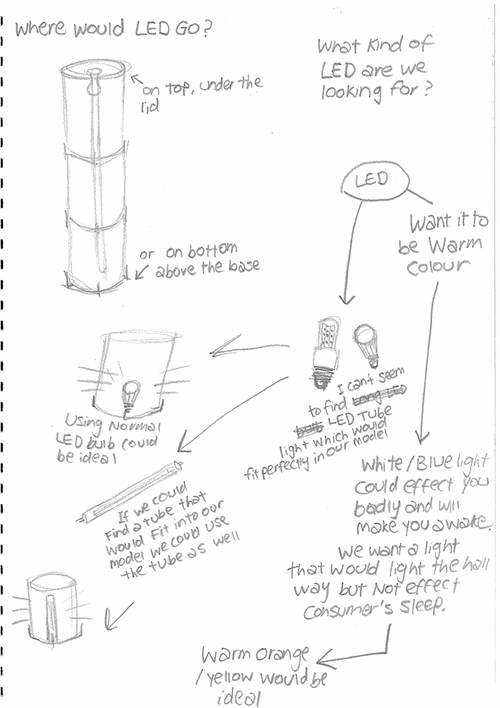 Where would LED Go?
on top, under the
lid
or on bottom
above the base
What kind of
LED are we
looking for?
LED
Want it to
be Warm
Colour
I can't seem
to find long LED
bulb LED Tube
light which would
fit perfectly in our model
Using Normal
LED bulb could
be ideal
If we could
Find a tube that
would Fit into our
model we could use
the tube as well
White/Blue light
could effect you
badly and will
make you awake.
We want a light
that would light the hall
way but Not effect
Consumer's sleep.
Warm orange
/yellow would be
ideal